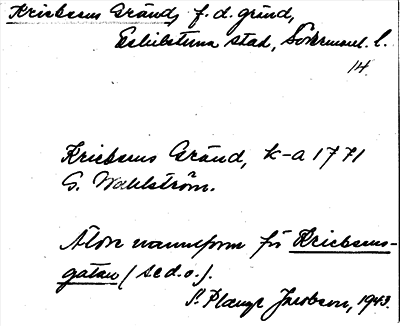 Kriebsens Gränd, f. d. gränd,
Eskilstuna stad, Söderman l. l.
14.
Kriebsens Gränd, k-a 1771
G. Wahlström.
Äldre namnform för Kriebsens-
gatan (se d. o.).
S. Plange Jacobson, 1943.